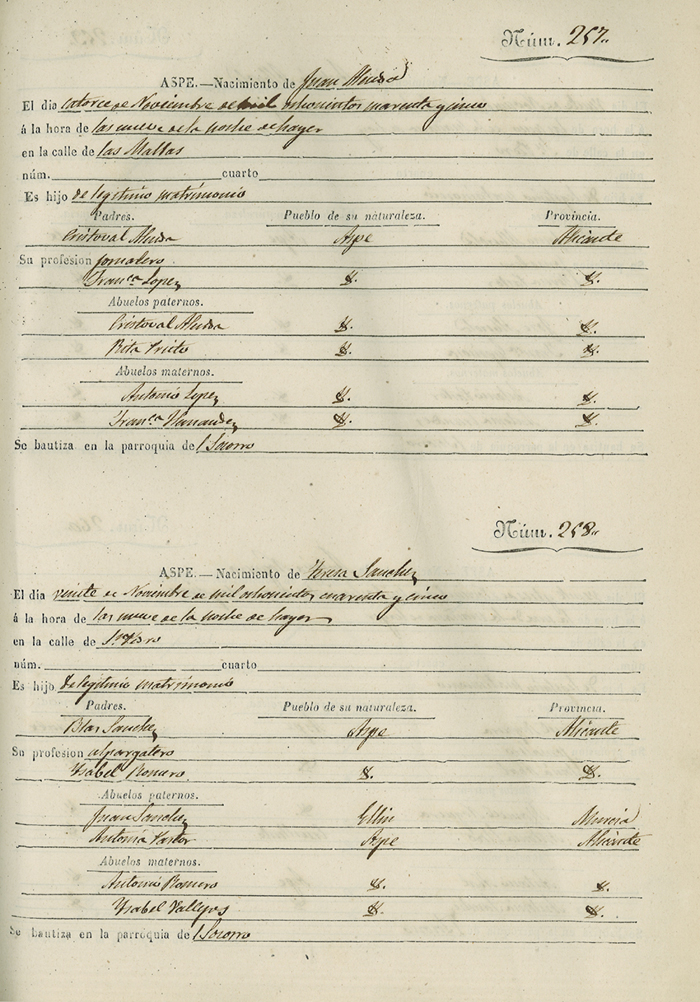 Núm. 257.
ASPE.—Nacimiento de Juan
El dia catorce de Noviembre de mil ochocientos cuarenta y cinco
á la hora de las nueve de la noche de hayer
en la calle de las Mallas
núm. cuarto
Es hijo de legitimo matrimonio
Padres. Pueblo de su naturaleza. Provincia.
Cristoval Aspe Alicante
Su profesion jornalero
Fran.ca Lopez
Abuelos paternos.
Cristoval
Rita Prieto
Abuelos maternos.
Antonio Lopez
Fran.ca Hernandez
Se bautiza en la parroquia del Socorro
Núm. 258.
ASPE.—Nacimiento de Teresa Sanchez
El dia veinte de Noviembre de mil ochocientos cuarenta y cinco
á la hora de las nueve de la noche de hayer
en la calle de
núm. cuarto
Es hijo de legitimo matrimonio
Padres. Pueblo de su naturaleza. Provincia.
Blas Sanchez Aspe Alicante
Su profesion alpargatero
Ysabel Romero
Abuelos paternos.
Juan Sanchez Ellin Murcia
Antonia Pastor Aspe Alicante
Abuelos maternos.
Antonio Romero
Ysabel Vallejos
Se bautiza en la parroquia del Socorro